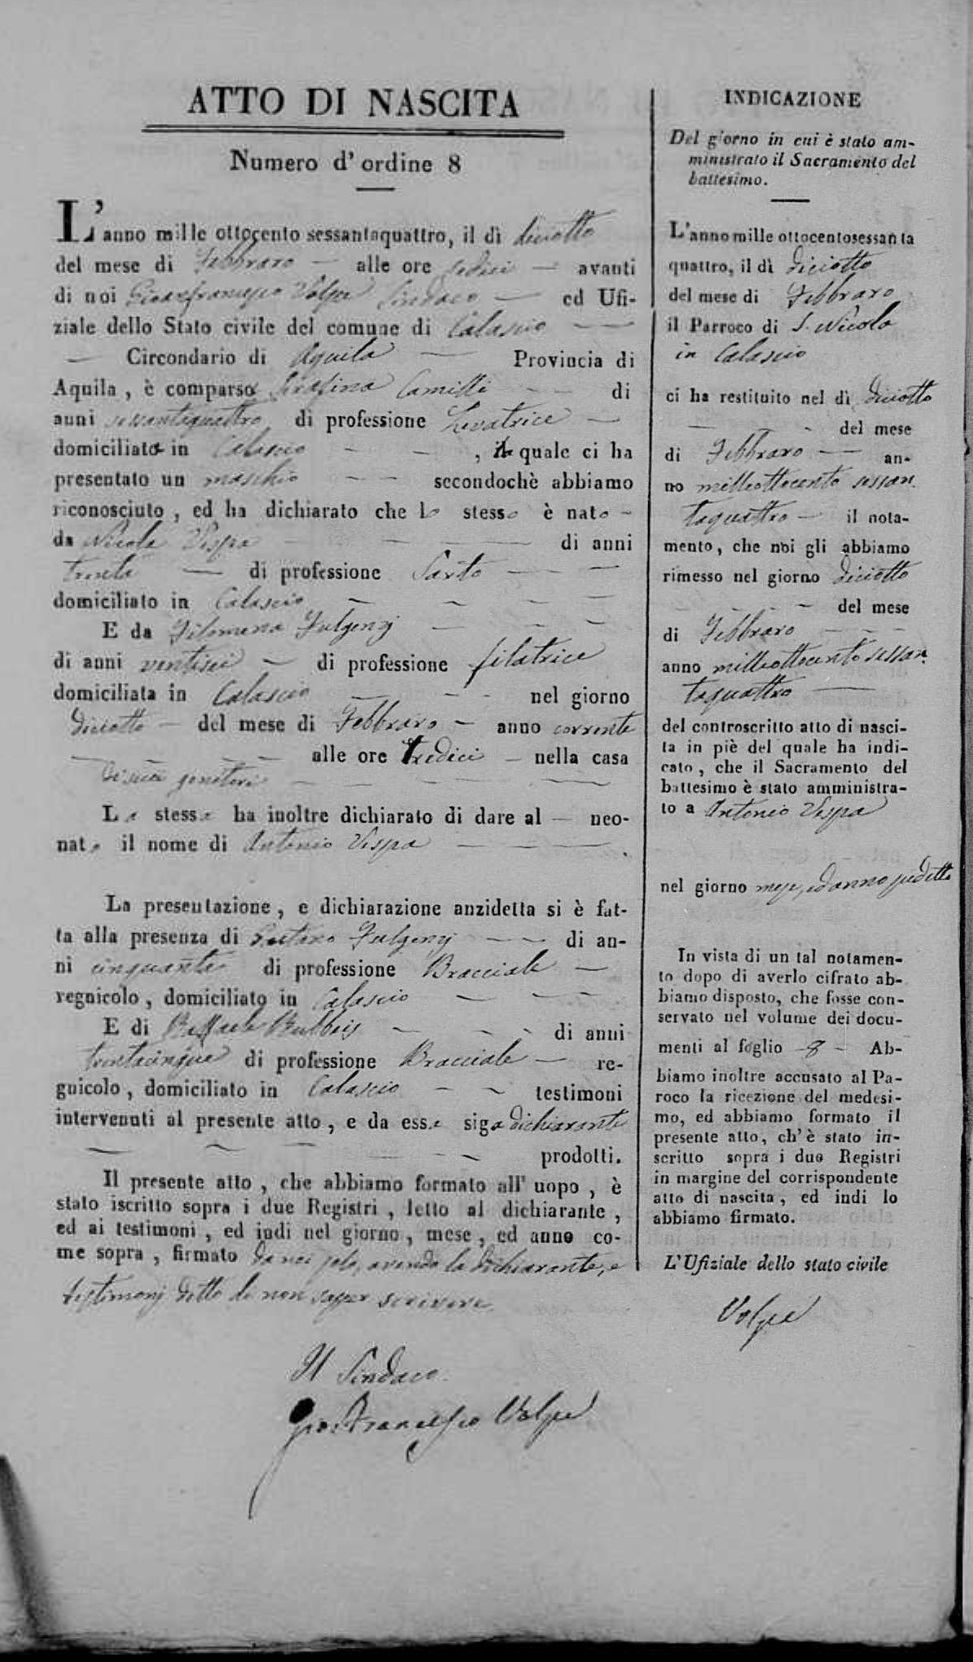 ATTO DI NASCITA
Numero d'ordine 8
L'anno mille ottocento sessantaquattro, il dì diciotto
del mese di Febbraro alle ore sedici avanti
di noi Gioanfrancesco Volpe Sindaco ed Ufi-
ziale dello Stato civile del comune di Calascio
Circondario di Aquila Provincia di
Aquila, è comparsa Serafina Camilli di
anni sessantaquattro di professione Levatrice
domiciliata in Calascio , la quale ci ha
presentato un maschio secondochè abbiamo
riconosciuto, ed ha dichiarato che lo stesso è nato
da Nicola Vespa di anni
trenta di professione Sarto
domiciliato in Calascio
E da Filomena Fulgenzj
di anni ventisei di professione filatrice
domiciliata in Calascio nel giorno
diciotto del mese di Febbraro anno corrente
alle ore tredici nella casa
di suoi genitori
La stessa ha inoltre dichiarato di dare al neo-
nato il nome di Antonio Vespa
La presentazione, e dichiarazione anzidetta si è fat-
ta alla presenza di Gaetano Fulgenzj di an-
ni cinquanta di professione Bracciale
regnicolo, domiciliato in Calascio
E di Raffaele di anni
trentacinque di professione Bracciale re-
gnicolo, domiciliato in Calascio testimoni
intervenuti al presente atto, e da essa siga dichiarante
prodotti.
Il presente atto, che abbiamo formato all' uopo, è
stato iscritto sopra i due Registri, letto al dichiarante,
ed ai testimoni, ed indi nel giorno, mese, ed anno co-
me sopra, firmato da noi solo, avendo la dichiarante, e
testimonj detto di non saper scrivere
Il Sindaco
Gio: Francesco Volpe
INDICAZIONE
Del giorno in cui è stato am-
ministrato il Sacramento del
battesimo.
L'anno mille ottocentosessanta
quattro, il dì diciotto
del mese di Febbraro
il Parroco di S. Nicola
in Calascio
ci ha restituito nel dì diciotto
del mese
di Febbraro an-
no milleottocento sessan
taquattro il nota-
mento, che noi gli abbiamo
rimesso nel giorno diciotto
del mese
di Febbraro
anno milleottocento sessan
taquattro
del controscritto atto di nasci-
ta in piè del quale ha indi-
cato, che il Sacramento del
battesimo è stato amministra-
to a Antonio Vespa
nel giorno mese, ed anno sudetto
In vista di un tal notamen-
to dopo di averlo cifrato ab-
biamo disposto, che fosse con-
servato nel volume dei docu-
menti al foglio 8 Ab-
biamo inoltre accusato al Pa-
roco la ricezione del medesi-
mo, ed abbiamo formato il
presente atto, ch'è stato in-
scritto sopra i due Registri
in margine del corrispondente
atto di nascita, ed indi lo
abbiamo firmato.
L'Ufiziale dello stato civile
Volpe